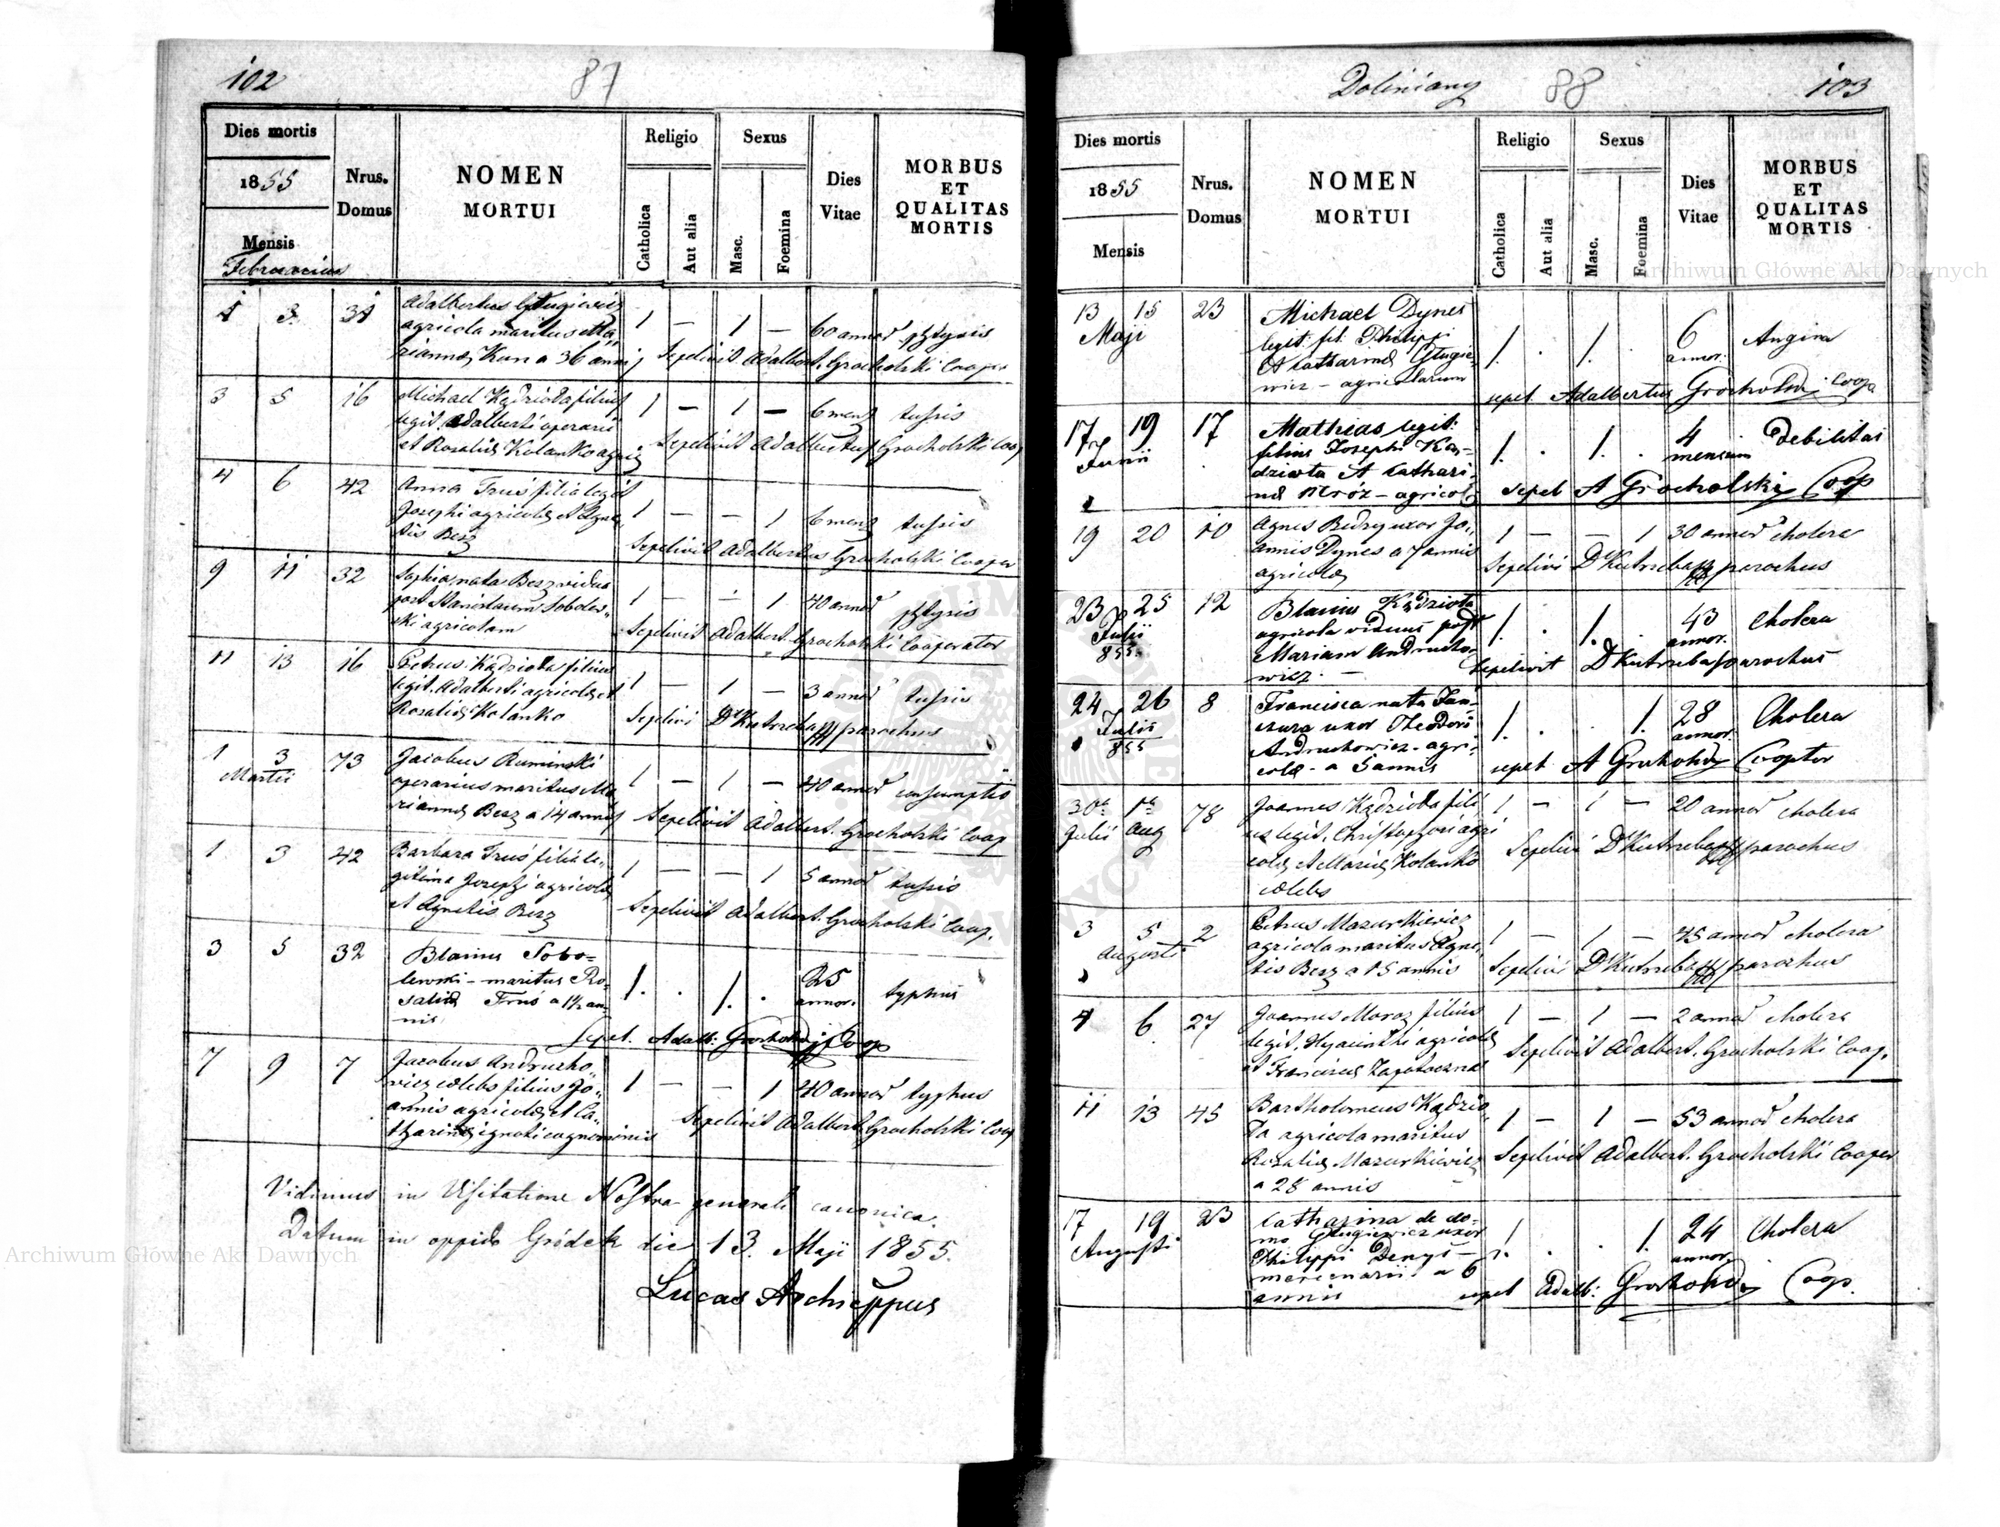 102
87
Dies mortis
1855
Mensis
Februarius
Nrus.
Domus
NOMEN
MORTUI
Religio
Catholica
Aut alia
Sexus
Masc.
Foemina
Dies
Vitae
MORBUS
ET
QUALITAS
MORTIS
1 3. 31 Adalbertus Glugiewicz
agricola maritus Ma„
rianna Kun a 36 annis
1 — 1 — 60 annor phtysis
Sepelivit Adalbert. Grocholski Cooper
3 5 16 Michael Kędziota filius
legit. Adalberti operarii
et Rosaliæ Kolanko agric
1 — 1 — 6 menz tussis
Sepelivit Adalbertus Grocholski Coop
4 6 42 Anna Truś filia legit
Josephi agricolæ et Agne
tis Besz
1 — — 1 6 menz tussis
Sepelivit Adalbertus Grocholski Cooper
9 11 32 Sophia nata Besz vidua
post Stanislaum Soboles„
ski agricolam
1 — — 1 40 annor phtysis
Sepelivit Adalbert. Grocholski Cooperator
11 13 16 Petrus Kędziota filius
legit. Adalberti agricolæ et
Rosaliæ Kolanko
1 — 1 — 3 annor tussis
Sepelivi D Kutrzeba parochus
1 3 73 Jacobus Ruminski
Martii
operarius maritus Ma
riannæ Besz a 14 annis
1 — 1 — 40 annor consumptio
Sepelivit Adalbert. Grocholski Coop
1 3 42 Barbara Truś filia le„
gitima Josephi agricolæ
et Agnetis Besz
1 — — 1 5 annor tussis
Sepelivit Adalbert. Grocholski Coop.
3 5 32 Blasius Sobo-
lewski - maritus Ro-
saliæ Truś a 1½ an-
nis
1. . 1. . 25
annor. typhus
sepel. Adalb: Grocholski Coop
7 9 7 Jacobus Andrucho„
wicz cælebs filius Jo„
annis agricolæ et Ca„
tharinæ ignoti cognominis
1 — — 1 40 annor typhus
Sepelivit Adalbert. Grocholski Coop
Vidimus in Visitatione Nostra generali canonica.
Datum in oppido Gródek die 13. Maji 1855.
Lucas Archieppus
Doliniany
88
103
Dies mortis
1855
Mensis
Nrus.
Domus
NOMEN
MORTUI
Religio
Catholica
Aut alia
Sexus
Masc.
Foemina
Dies
Vitae
MORBUS
ET
QUALITAS
MORTIS
13 15 23 Michael Dynes
Maji
legit. fil. Philippi
et Catharinæ Glugie-
wicz - agricolarum
1. . 1. . 6
annor. Angina
sepel Adalbertus Grocholski Coop
17 19 17 Mathias legit:
Junii
filius Josephi Kę-
dziota et Cathari
næ Mróz - agricol
1. . 1. . 4
mensium Debilitas
sepel A Grocholski Coop
19 20 10 Agnes Bedry uxor Jo„
annis Dynes a 7 annis
agricolæ
1 — — 1 30 annor cholera
Sepelivi D Kutrzeba parochus
23 25 12 Blasius Kędziota
Julii
855
agricola viduus post
Mariam Andrucho-
wicz. —
1. . 1. . 43
annor. Cholera
Sepelivit D Kutrzeba parochus
24 26 8 Francisca nata Jan-
Julii
855
czura uxor Theodori
Andruchowicz - agri-
colæ - a 5 annis
1. . . 1. 28
annor. Cholera
sepel A Grocholski Cooptor
30a 1a 78 Joannes Kędziota fili
Julii Aug
us legit. Christophori agri
colæ et Mariæ Kolanko
cælebs
1 — 1 — 20 annor cholera
Sepelivi D Kutrzeba parochus
3 5 2 Petrus Mazurkiewicz
Augusti
agricola maritus Agne„
tis Besz a 15 annis
1 — 1 — 45 annor cholera
Sepelivi D Kutrzeba parochus
4 6 27 Joannes Moroz filius
legit. Hyacinthi agricolæ
et Franciscæ Zapotoczna
1 — 1 — 2 annor cholera
Sepelivit Adalbert. Grocholski Coop.
11 13 45 Bartholomeus Kędzio„
ta agricola maritus
Rosaliæ Mazurkiewicz
a 28 annis
1 — 1 — 53 annor cholera
Sepelivit Adalbert. Grocholski Cooper
17 19 23 Catharina de do-
Augusti
mo Glugiewicz uxor
Philippi Denys -
mercenarii. a 6
annis
1. . . 1. 24
annor. Cholera
sepel Adalb: Grocholski Coop.
Archiwum Główne Akt Dawnych
Archiwum Główne Akt Dawnych